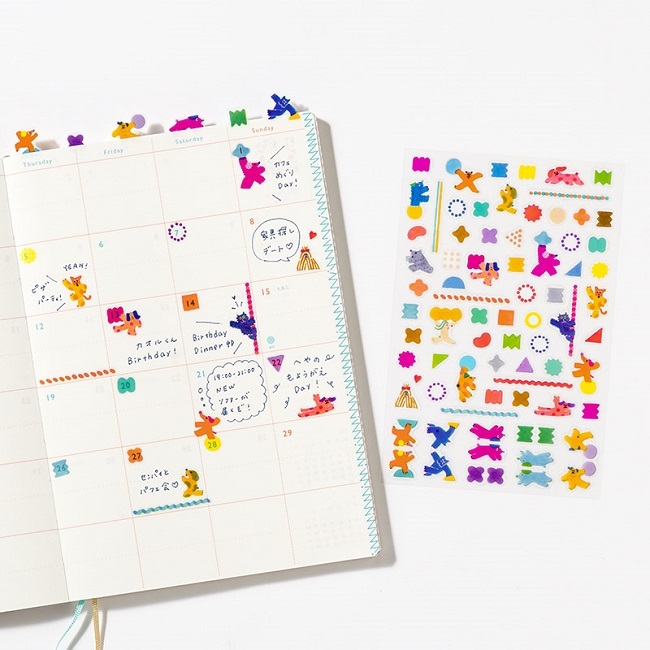 Thursday
Friday
Saturday
Sunday
1
カフェ
めぐり
Day!
5
YEAH!
ピザ
パーティ!
6
7
8
家具探し
デート♡
12
13
カオルくん
Birthday!
14
Birthday
Dinner
15
19
20
21
19:00-21:00
NEW
ソファーが
届くぞ!
22
へやの
もようがえ
Day!
26
27
センパイと
パフェ会♡
28
29